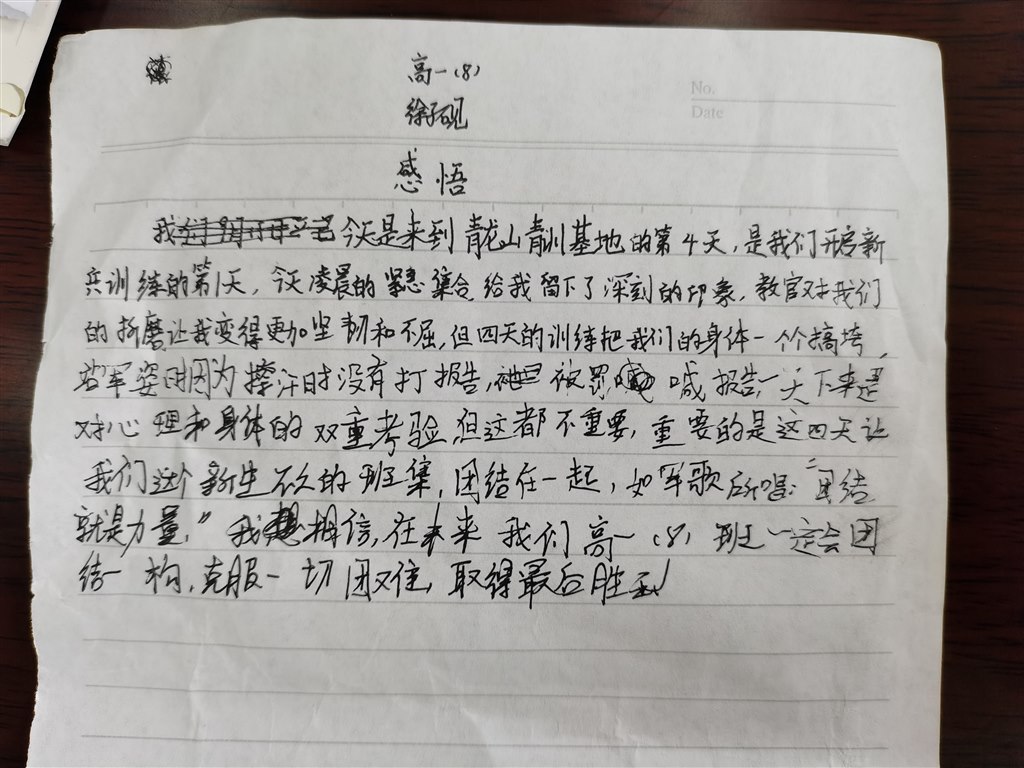 高一（8）
徐子砚
No.
Date
感悟
我今天是来到青龙山青训基地的第4天，是我们开启新
兵训练的第1天，今天凌晨的紧急集合给我留下了深刻的印象，教官对我们
的折磨让我变得更加坚韧和不屈，但四天的训练把我们的身体一个个搞垮，
站军姿时因为擦汗时没有打报告，被罚喊报告，一天下来是
对心理和身体的双重考验，但这都不重要，重要的是这四天让
我们这个新生不久的班集，团结在一起，如军歌所唱：“团结
就是力量，”我相信，在未来我们高一（8）班一定会团
结一构，克服一切困难，取得最后胜利